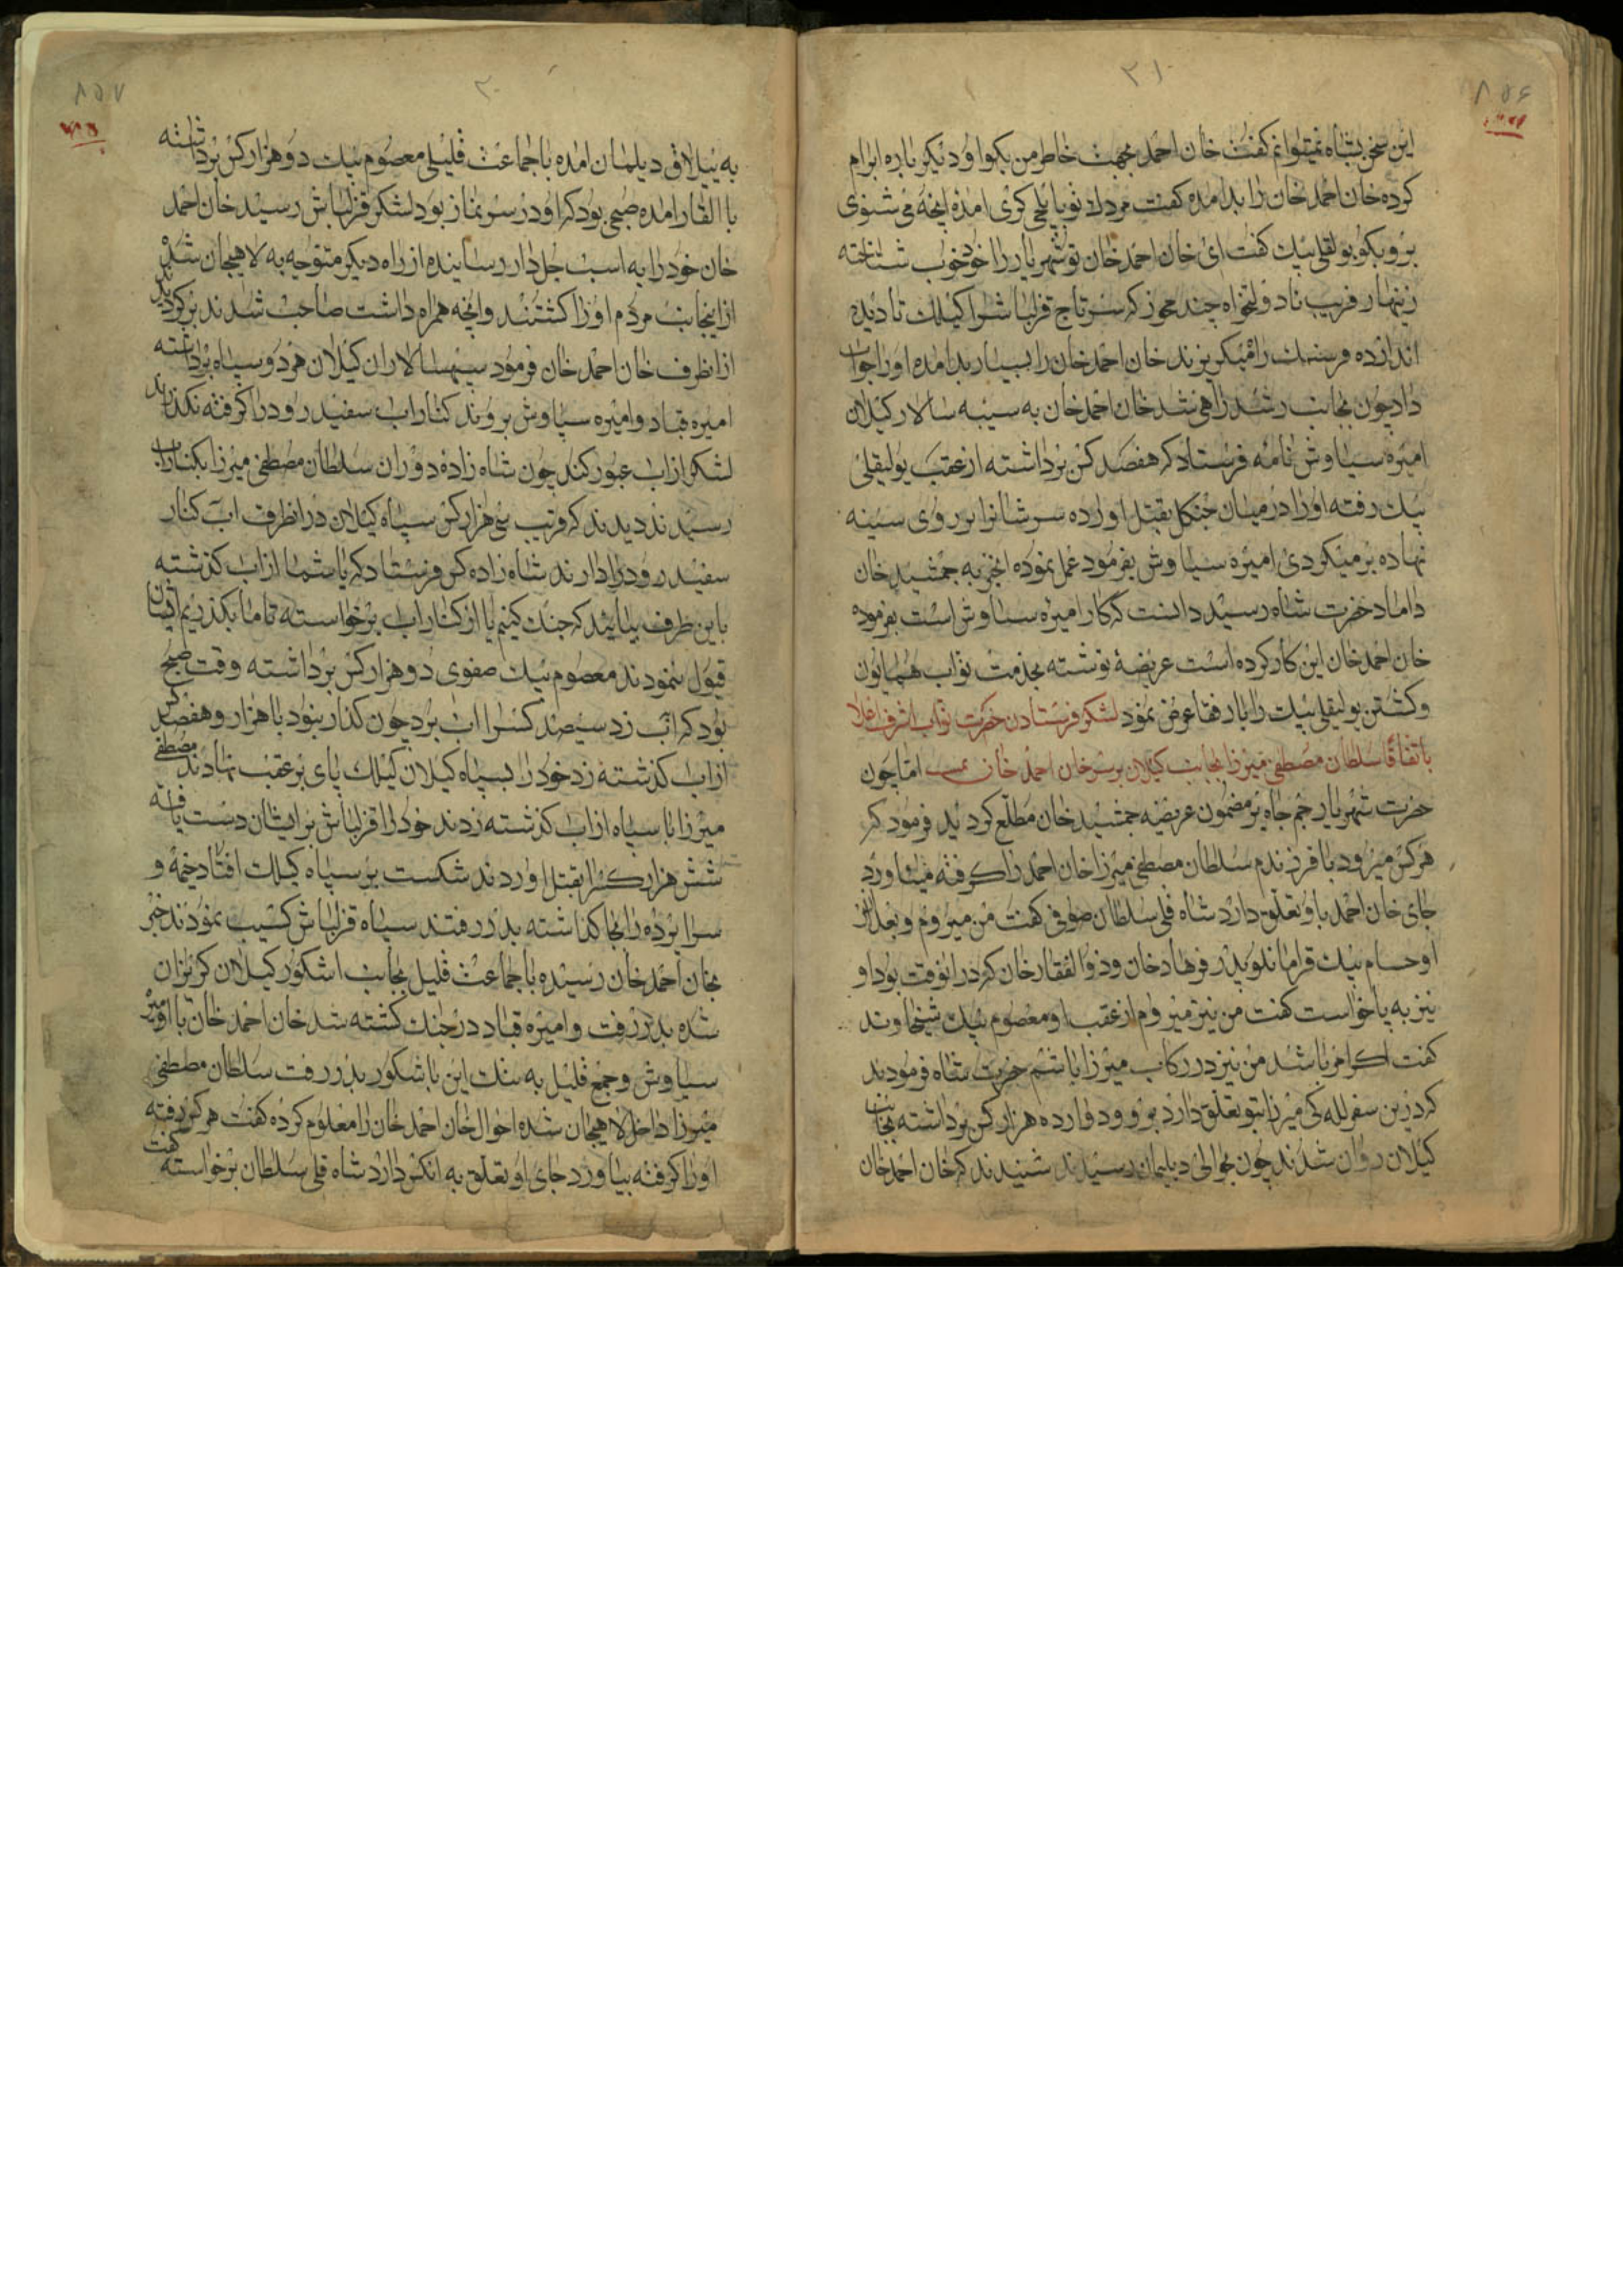 ۳۱
۸۵۶
این سخن بشاه نمیتوانم کفت خان احمد بجهت خاطر من بکو او دیکر باره ابرام
کرده خان احمد خان را بد امده کفت مردک تو بایلچی کری امدهٔ انچه می شنوی
برو بکو بولقلی بیک کفت ای خان احمد خان تو شهریار را خود خوب شناخته
زینهار فریب نادولتخواه چند مخور که سر تاج قزلباش را کیلک تا دیده
اندازده فرسنک راه میکریزند خان احمد خان را بسیار بد امده او را جواب
داد چون بجانب رشت راهی شد خان احمد خان به سپه سالار کیلان
امیره سیاوش نامه فرستاد که هفصد کس برداشته از عقب بولیقلی
بیک رفته او را در میان جنکل بقتل اورده سرشانرا بر روی سینه
نهاده برمیکردی امیره سیاوش بفرمود عمل نموده انخبر به جمشید خان
داماد حضرت شاه رسید دانست که کار امیره سیاوش است بفرموده
خان احمد خان این کار کرده است عریضهٔ نوشته بخدمت نواب همایون
و کشتن بولیقلی بیک را با رفقا عرض نمود لشکر فرستادن حضرت نواب اشرف اعلا
باتفاق سلطان مصطفی میرزا بجانب کیلان بر سر خان احمد خان اما چون
حضرت شهریار جم جاه بر مضمون عریضه جمشید خان مطلع کردید فرمود که
هر کس میرود با فرزندم سلطان مصطفی میرزا خان احمد را کرفته میاورد
جای خان احمد باو تعلق دارد شاه قلی سلطان صوفی کفت من میروم و بعد از
او حسام بیک قرامانلو پدر فرهاد خان و ذو الفقار خان که در انوقت بود او
نیز به پا خواست کفت من نیز میروم از عقب او معصوم بیک شیخاوند
کفت اکر امر باشد من نیز در رکاب میرزا باشم حضرت شاه فرمودند
که درین سفر لله کی میرزا بتو تعلق دارد برو و دوازده هزار کس برداشته بجانب
کیلان روان شدند چون بحوالی دیلمان رسیدند شنیدند که خان احمد خان
۸۵۷
به ییلاق دیلمان امده با جماعت قلیلی معصوم بیک دو هزار کس برداشته
با القار امده صبحی بود که او در سر نماز بود لشکر قزلباش رسید خان احمد
خان خود را به اسب جل دار رسانیده از راه دیکر متوجه به لاهیجان شد
ازینجانب مردم او را کشتند و انچه همراه داشت صاحب شدند برکردیدند
از انطرف خان احمد خان فرمود سپهسالاران کیلان هر دو سپاه برداشته
امیره قباد و امیره سیاوش بروند کنار اب سفید رود را کرفته نکذارند
لشکر از اب عبور کند چون شاه زادهٔ دوران سلطان مصطفی میرزا بکنار اب
رسیدند دیدند که قریب سی هزار کس سپاه کیلان در انطرف اب کنار
سفید رود را دارند شاه زاده کس فرستاد که یا شما از اب کذشته
باین طرف بیائید که جنک کنیم یا از کنار اب برخواسته تا ما بکذریم ایشان
قبول ننمودند معصوم بیک صفوی دو هزار کس برداشته وقت صبح
بود که باب زد سیصد کس را اب برد چون کذار بنود با هزار و هفصد کس
از اب کذشته زد خود را بسپاه کیلان کیلک پای بر عقب نهادند مصطفی
میرزا با سپاه از اب کذشته زدند خود را قزلباش بر ایشان دست یافته
شش هزار کس را بقتل اوردند شکست بر سپاه کیلک افتاد خیمه و
سراپرده را بجا کذاشته بدر رفتند سپاه قزلباش کسیب نمودند خبر
بخان احمد خان رسیده با جماعت قلیل بجانب اشکور کیلان کریزان
شده بدر رفت و امیره قباد در جنک کشته شد خان احمد خان با امیره
سیاوش و جمع قلیل به بنک این با شکور بدر رفت سلطان مصطفی
میرزا داخل لاهیجان شده احوال خان احمد خان را معلوم کرده کفت هر کس رفته
او را کرفته بیاورد جای او تعلق به انکس دارد شاه قلی سلطان برخواسته کفت